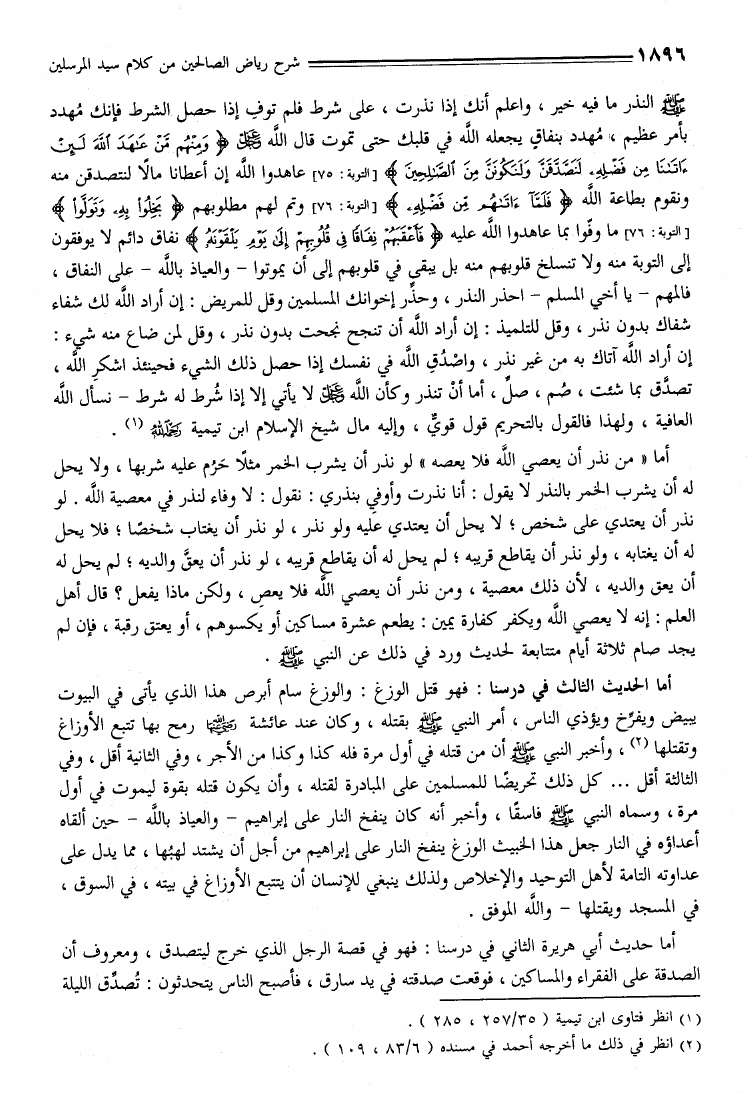 ١٨٩٦ شرح رياض الصالحين من كلام سيد المرسلين
ﷺ النذر ما فيه خير ، واعلم أنك إذا نذرت ، على شرط فلم توفِ إذا حصل الشرط فإنك مُهدد
بأمر عظيم ، مُهدد بنفاق يجعله اللَّه في قلبك حتى تموت قال اللَّه ﷻ ﴿ وَمِنْهُم مَّنْ عَٰهَدَ ٱللَّهَ لَـئِنْ
ءَاتَىٰنَا مِن فَضْلِهِۦ لَنَصَّدَّقَنَّ وَلَنَكُونَنَّ مِنَ ٱلصَّٰلِحِينَ ﴾ [التوبة : ٧٥] عاهدوا اللَّه إن أعطانا مالًا لنتصدقن منه
ونقوم بطاعة اللَّه ﴿ فَلَمَّآ ءَاتَىٰهُم مِّن فَضْلِهِۦ ﴾ [التوبة : ٧٦] وتم لهم مطلوبهم ﴿ بَخِلُوا۟ بِهِۦ وَتَوَلَّوا۟ ﴾
[التوبة : ٧٦] ما وفَّوا بما عاهدوا اللَّه عليه ﴿ فَأَعْقَبَهُمْ نِفَاقًا فِى قُلُوبِهِمْ إِلَىٰ يَوْمِ يَلْقَوْنَهُۥ ﴾ نفاق دائم لا يوفقون
إلى التوبة منه ولا تنسلخ قلوبهم منه بل يبقى في قلوبهم إلى أن يموتوا – والعياذ باللَّه – على النفاق ،
فالمهم – يا أخي المسلم – احذر النذر ، وحذِّر إخوانك المسلمين وقل للمريض : إن أراد اللَّه لك شفاء
شفاك بدون نذر ، وقل للتلميذ : إن أراد اللَّه أن تنجح نجحت بدون نذر ، وقل لمن ضاع منه شيء :
إن أراد اللَّه آتاك به من غير نذر ، واصْدُقِ اللَّه في نفسك إذا حصل ذلك الشيء فحينئذ اشكرِ اللَّه ،
تصدَّق بما شئت ، صُم ، صلِّ ، أما أنْ تنذر وكأن اللَّه ﷻ لا يأتي إلا إذا شُرط له شرط – نسأل اللَّه
العافية ، ولهذا فالقول بالتحريم قول قويٌّ ، وإليه مال شيخ الإسلام ابن تيمية رحمه الله (١) .
أما « من نذر أن يعصي اللَّه فلا يعصه » لو نذر أن يشرب الخمر مثلًا حَرُم عليه شربها ، ولا يحل
له أن يشرب الخمر بالنذر لا يقول : أنا نذرت وأوفي بنذري : نقول : لا وفاء لنذر في معصية اللَّه . لو
نذر أن يعتدي على شخص ؛ لا يحل أن يعتدي عليه ولو نذر ، لو نذر أن يغتاب شخصًا ؛ فلا يحل
له أن يغتابه ، ولو نذر أن يقاطع قريبه ؛ لم يحل له أن يقاطع قريبه ، لو نذر أن يعقَّ والديه ؛ لم يحل له
أن يعق والديه ، لأن ذلك معصية ، ومن نذر أن يعصي اللَّه فلا يعصِ ، ولكن ماذا يفعل ؟ قال أهل
العلم : إنه لا يعصي اللَّه ويكفر كفارة يمين : يطعم عشرة مساكين أو يكسوهم ، أو يعتق رقبة ، فإن لم
يجد صام ثلاثة أيام متتابعة لحديث ورد في ذلك عن النبي ﷺ .
أما الحديث الثالث في درسنا : فهو قتل الوزغ : والوزغ سام أبرص هذا الذي يأتى في البيوت
يبيض ويفرِّخ ويؤذي الناس ، أمر النبي ﷺ بقتله ، وكان عند عائشة رضي الله عنها رمح بها تتبع الأوزاغ
وتقتلها (٢) ، وأخبر النبي ﷺ أن من قتله في أول مرة فله كذا وكذا من الأجر ، وفي الثانية أقل ، وفي
الثالثة أقل ... كل ذلك تحريضًا للمسلمين على المبادرة لقتله ، وأن يكون قتله بقوة ليموت في أول
مرة ، وسماه النبي ﷺ فاسقًا ، وأخبر أنه كان ينفخ النار على إبراهيم – والعياذ باللَّه – حين ألقاه
أعداؤه في النار جعل هذا الخبيث الوزغ ينفخ النار على إبراهيم من أجل أن يشتد لهبُها ، مما يدل على
عداوته التامة لأهل التوحيد والإخلاص ولذلك ينبغي للإنسان أن يتتبع الأوزاغ في بيته ، في السوق ،
في المسجد ويقتلها – واللَّه الموفق .
أما حديث أبي هريرة الثاني في درسنا : فهو في قصة الرجل الذي خرج ليتصدق ، ومعروف أن
الصدقة على الفقراء والمساكين ، فوقعت صدقته في يد سارق ، فأصبح الناس يتحدثون : تُصدِّق الليلة
(١) انظر فتاوى ابن تيمية ( ٢٥٧/٣٥ ، ٢٨٥ ) .
(٢) انظر في ذلك ما أخرجه أحمد في مسنده ( ٨٣/٦ ، ١٠٩ ) .